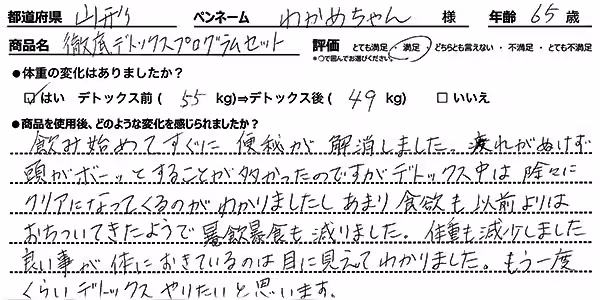 都道府県 山形 ペンネーム わかめちゃん 様 年齢 65 歳
商品名 徹底デトックスプログラムセット 評価 とても満足・満足・どちらとも言えない・不満足・とても不満足
*○で囲んでお選びください。
●体重の変化はありましたか？
☑はい デトックス前（ 55 kg)⇒デトックス後（ 49 kg) □いいえ
●商品を使用後、どのような変化を感じられましたか？
飲み始めてすぐに 便秘が 解消しました。疲れがぬけず
頭がボーッとすることが多かったのですがデトックス中は 除々に
クリアになってくるのがわかりましたし あまり食欲も以前よりは
おちついてきたようで 暴飲暴食も減りました。体重も減少しました
良い事が 体におきているのは目に見えてわかりました。もう一度
くらいデトックスやりたいと思います。